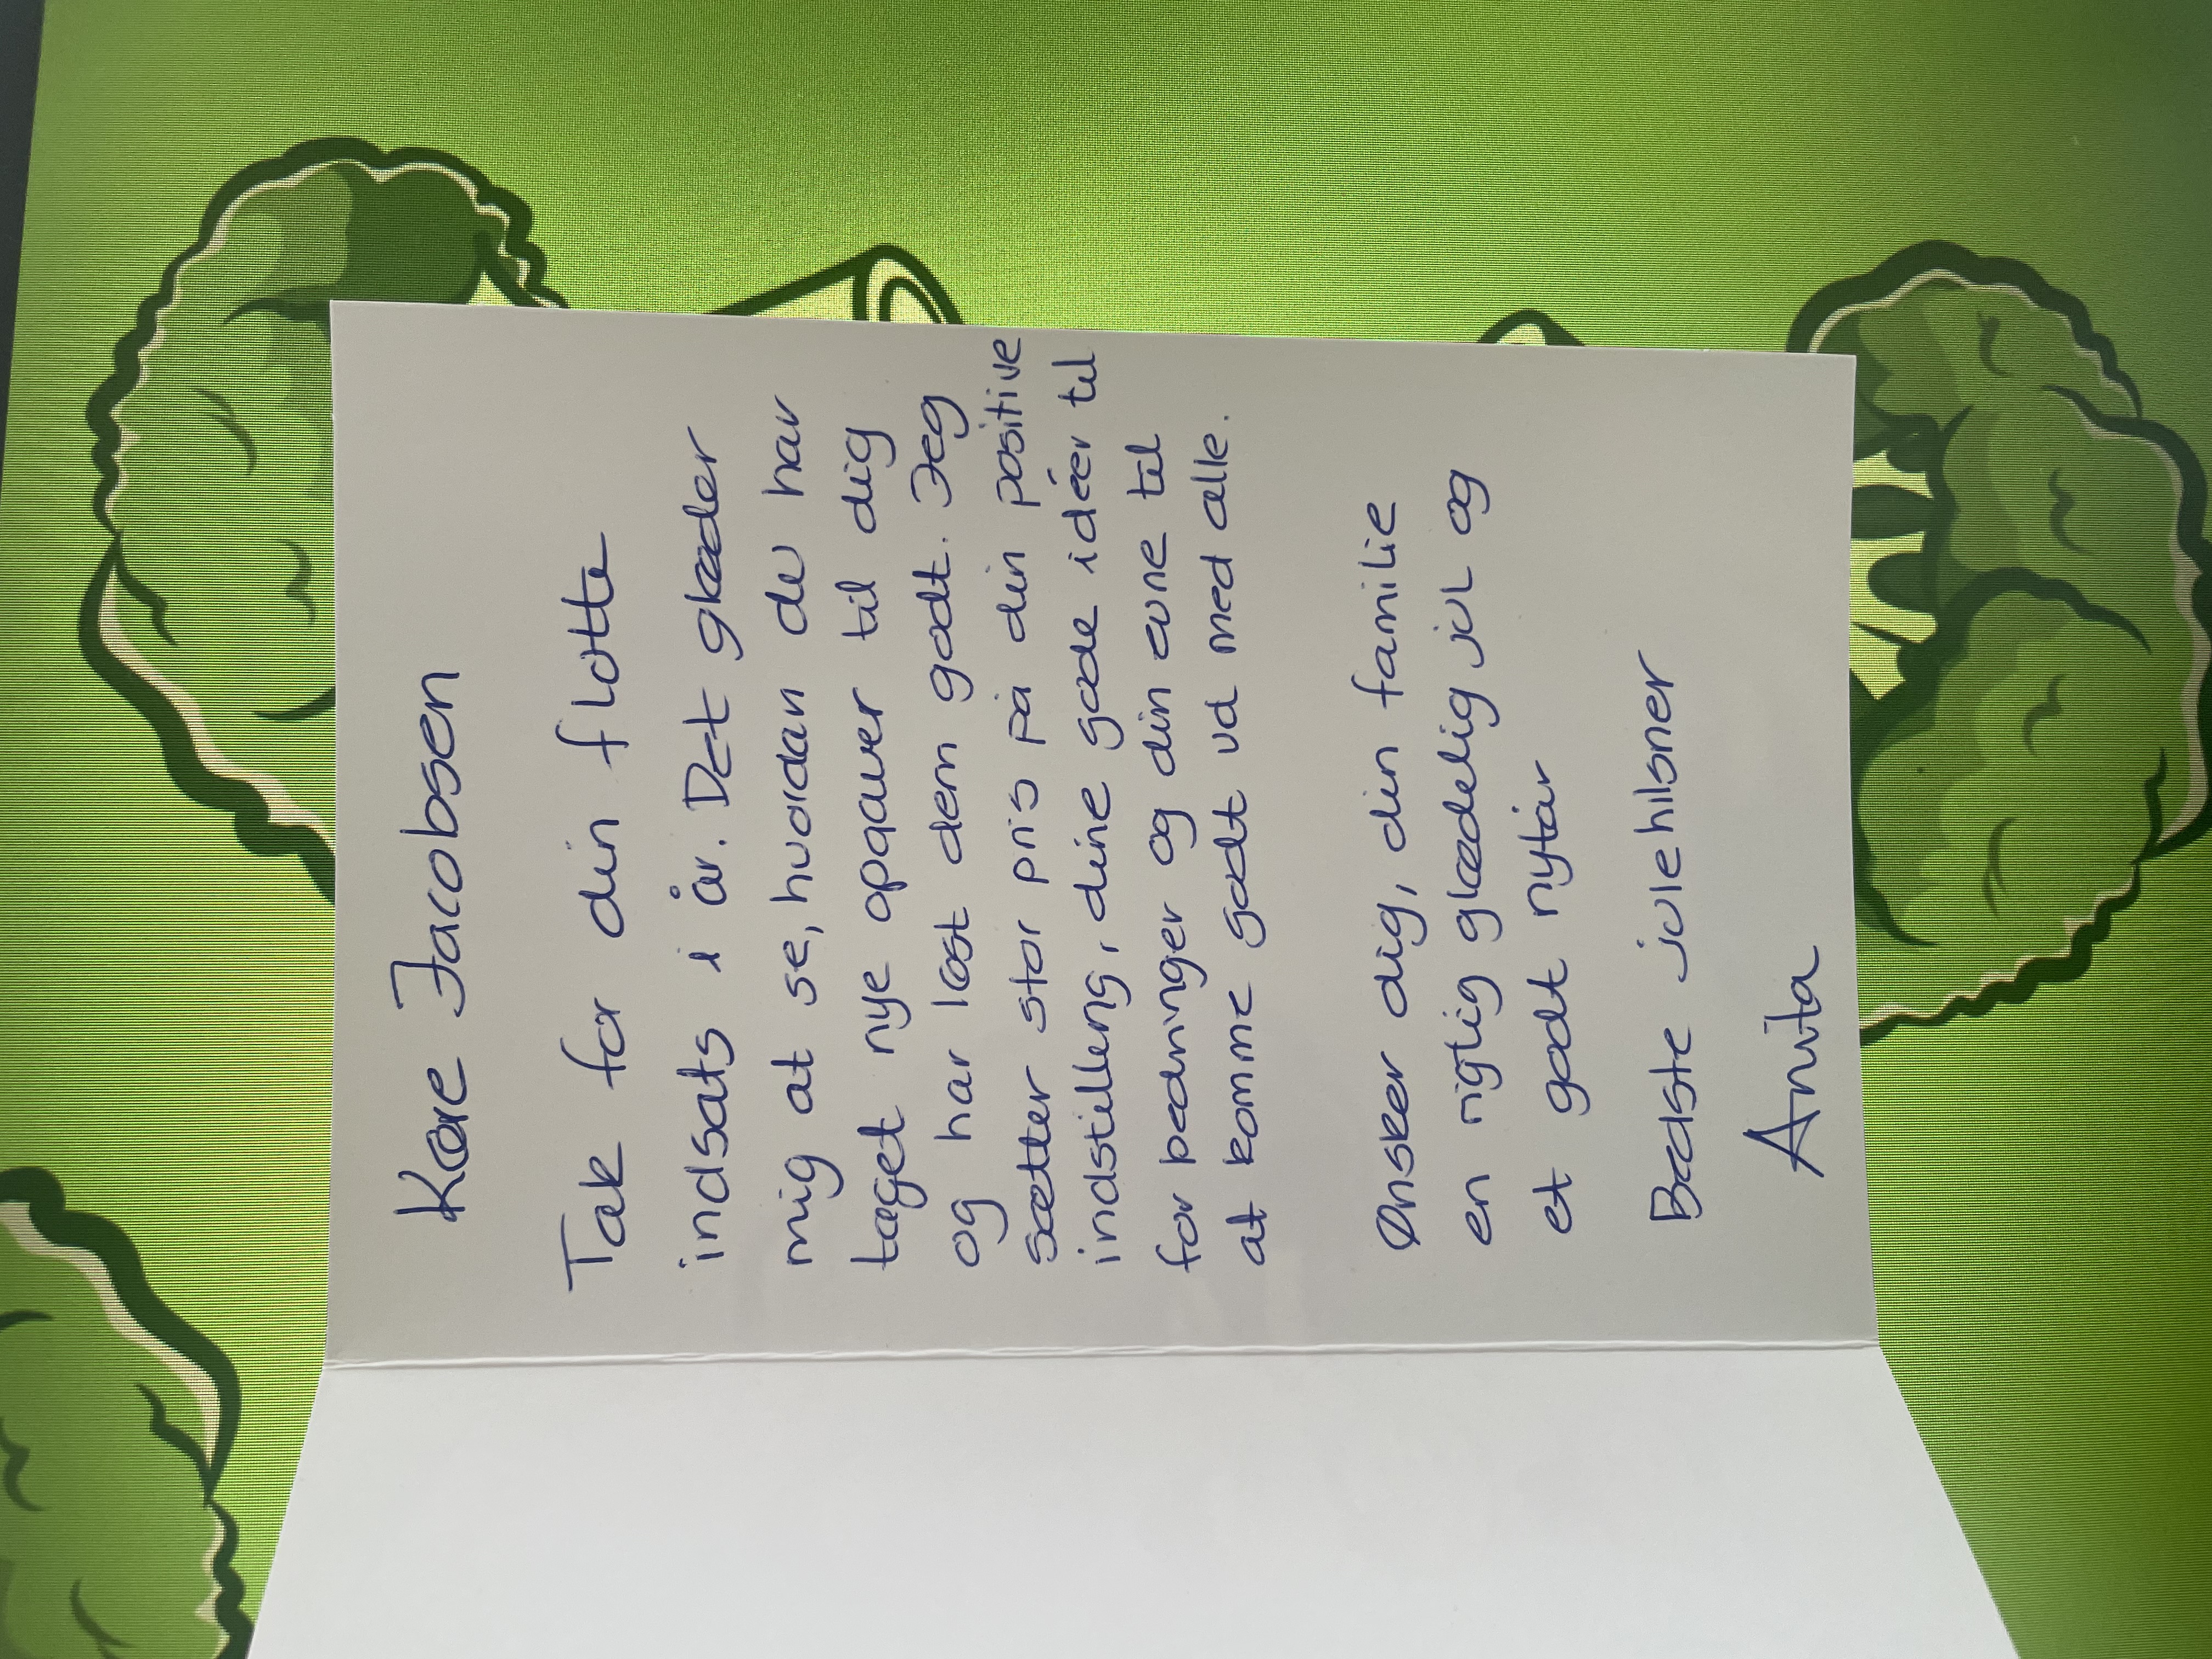 Kære Jacobsen
Tak for din flotte
indsats i år. Det glæder
mig at se, hvordan du har
taget nye opgaver til dig
og har løst dem godt. Jeg
sætter stor pris på din positive
indstilling, dine gode idéer til
forbedringer og din evne til
at komme godt ud med alle.
Ønsker dig, din familie
en rigtig glædelig jul og
et godt nytår
Bedste julehilsner
Anita